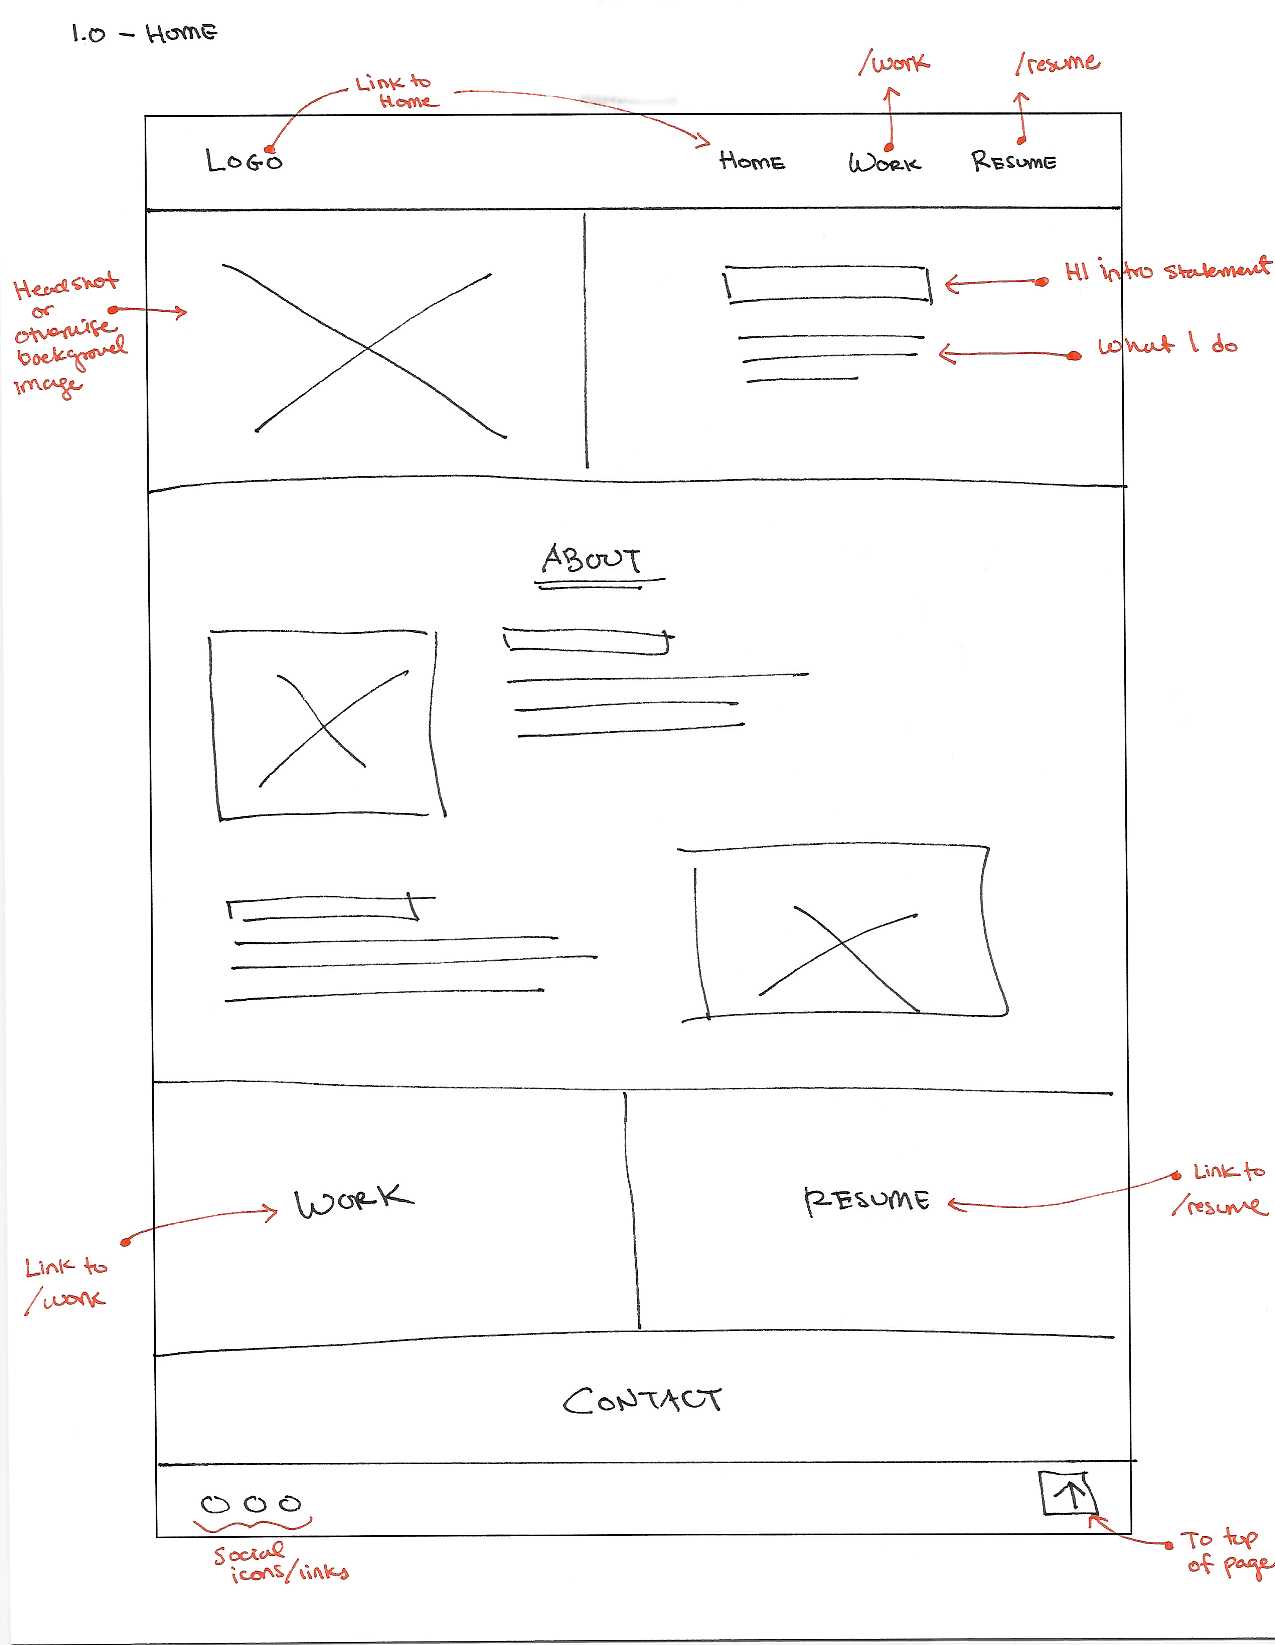 1.0 - HOME
/work
/resume
Link to
Home
LOGO
HOME
WORK
RESUME
Headshot
or
otherwise
background
image
H1 intro statement
What I do
ABOUT
WORK
RESUME
Link to
/resume
Link to
/work
CONTACT
Social
icons/links
To top
of page